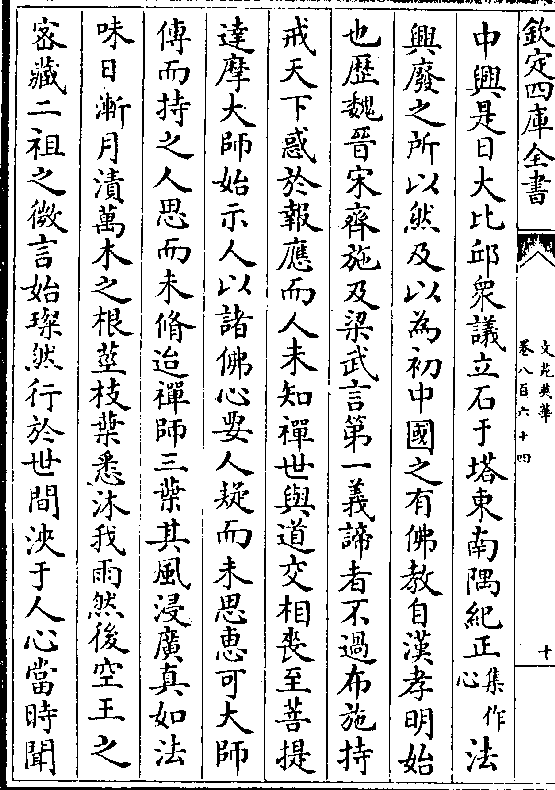 欽定四庫全書
文苑英華
卷八百六十四
十
中興是日大比邱衆議立石于塔東南隅紀正集作心法
興廢之所以然及以為初中國之有佛教自漢孝明始
也歷魏晉宋齊施及梁武言第一義諦者不過布施持
戒天下惑於報應而人未知禪世與道交相喪至菩提
達摩大師始示人以諸佛心要人疑而未思惠可大師
傳而持之人思而未脩迨禪師三葉其風浸廣真如法
味日漸月漬萬木之根莖枝葉悉沐我雨然後空王之
宻藏二祖之微言始璨然行於世間浹于人心當時聞